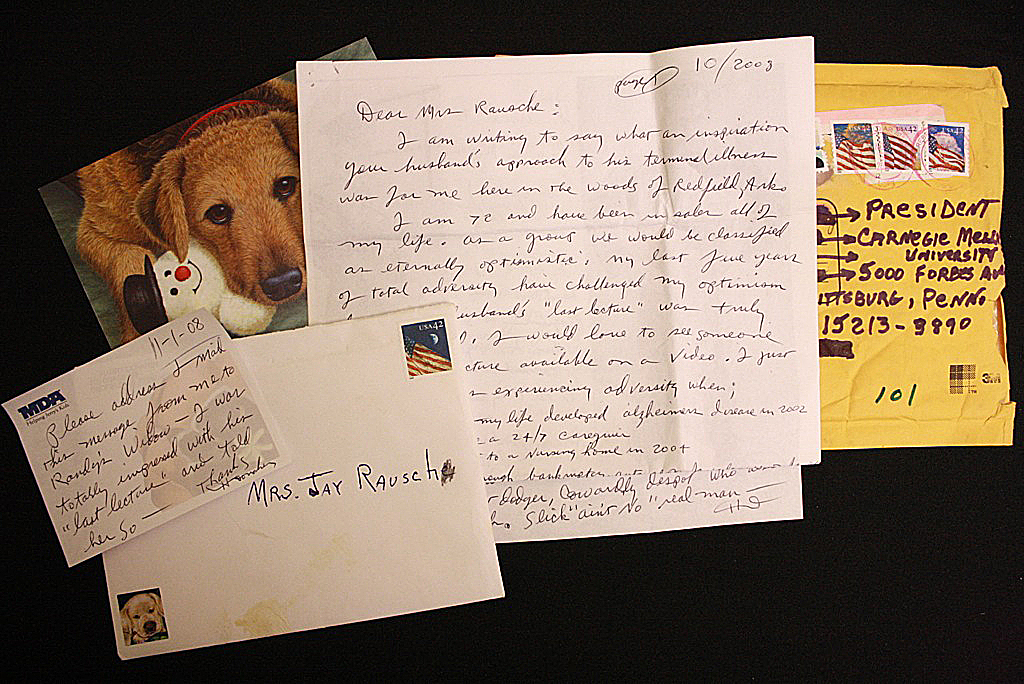 page 1
10/2008
Dear Mrs Rausche:
I am writing to say what an inspiration
your husband's approach to his terminal illness
was for me here in the woods of Redfield, Ark.
I am 72 and have been in sales all of
my life. As a group we would be classified
as eternally optimistic. My last five years
of total adversity have challenged my optimism
husband's "last lecture" was truly
I would love to see someone
available on a video. I just
experiencing adversity when;
my life developed alzheimers disease in 2002
a 24/7 caregiver
to a nursing home in 2004
bankruptcy
Dodger, Cowardly despot who
Slick "aint no "real man
USA 42
USA 42
USA 42
PRESIDENT
CARNEGIE MELL
UNIVERSITY
5000 FORBES AV
TTSBURG, PENN.
15213-3890
101
3M
11-1-08
MDA
Helping Jerry's Kids
Please address & mail
this message from me to
Randy's Widow - I was
totally impressed with his
"last lecture" and told
her so
Thanks
USA 42
MRS. JAY RAUSCHE